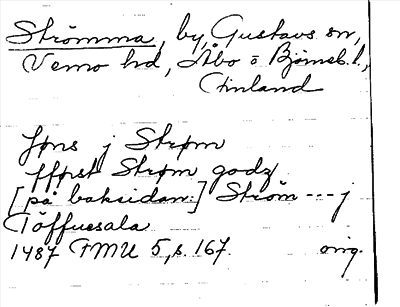 Strömma, by, Gustavs sn,
Vemo hd, Åbo o Björneb. l.,
Finland
Jøns j Strøm
fførst Strøm godz
[på baksidan:] Ström --- j
Töffuesala
1487 FMU 5, s. 167. orig.